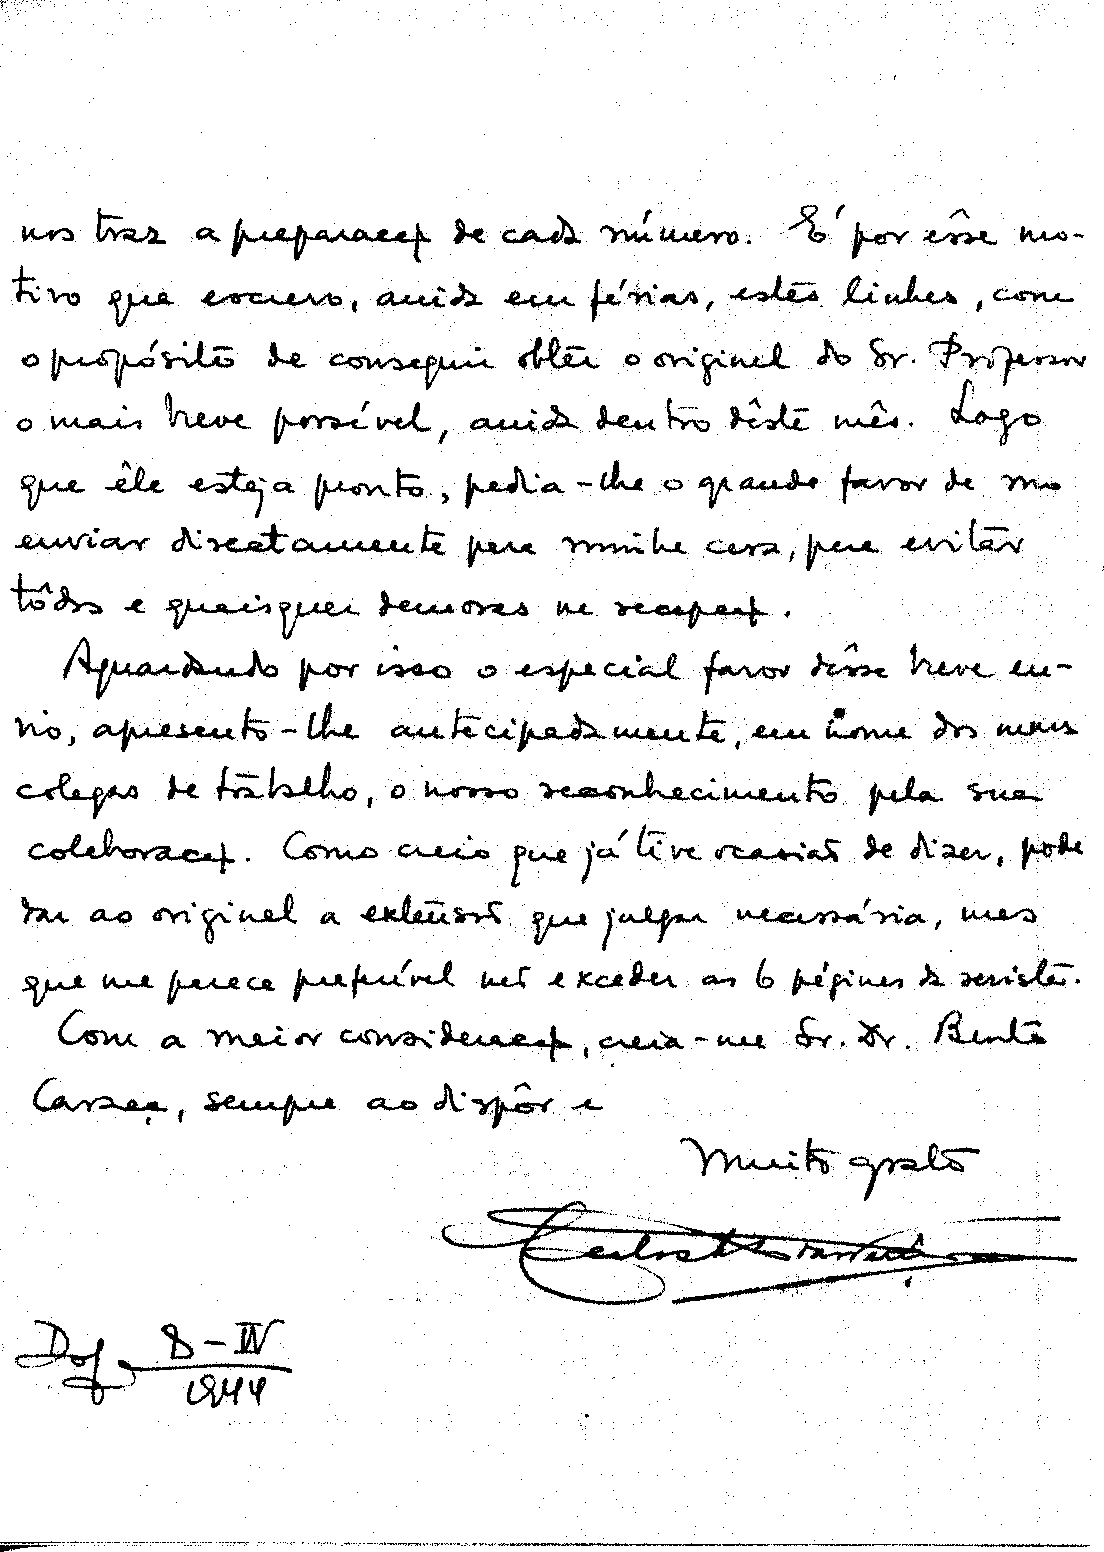 nos traz a preparação de cada número. É por êsse mo-
tivo que escrevo, ainda em férias, estas linhas, com
o propósito de conseguir obter o original do Sr. Professor
o mais breve possível, ainda dentro dêste mês. Logo
que êle esteja pronto, pedia-lhe o grande favor de mo
enviar directamente para minha casa, para evitar
tôdas e quaisquer demoras na recepção.
Aguardando por isso o especial favor dêsse breve en-
vio, apresento-lhe antecipadamente, em nome dos meus
colegas de trabalho, o nosso reconhecimento pela sua
colaboração. Como creio que já tive ocasião de dizer, pode
dar ao original a extensão que julgar necessária, mas
que me parece preferível não exceder as 6 páginas da revista.
Com a maior consideração, creia-me Sr. Dr. Bento
Caraça, sempre ao dispôr e
Muito grato
Carlos
8-IV
1944